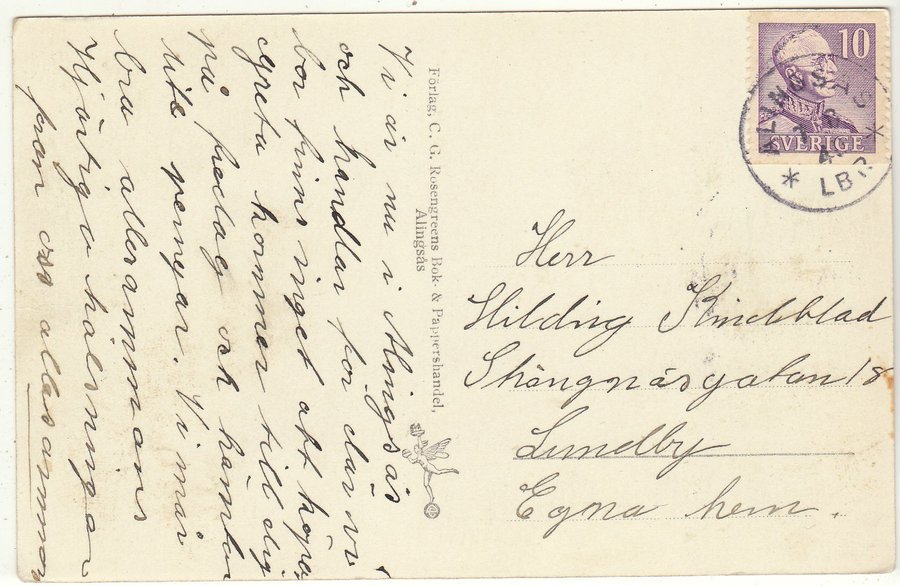 Vi är nu i Alingsås
och handlar for där vi
bor finns inget att köpa
greta kommer till dig
på fredag och hämtar
lite pengar. Vi mår
bra allasammans
Hjärtiga hälsningar
från oss allasamman
Förlag, C. G. Rosengreens Bok- & Pappershandel,
Alingsås
10
SVERIGE
ALINGSÅS
LBR
Herr
Hilding Kindblad
Skångnäsgatan 18
Lundby
Egna hem.